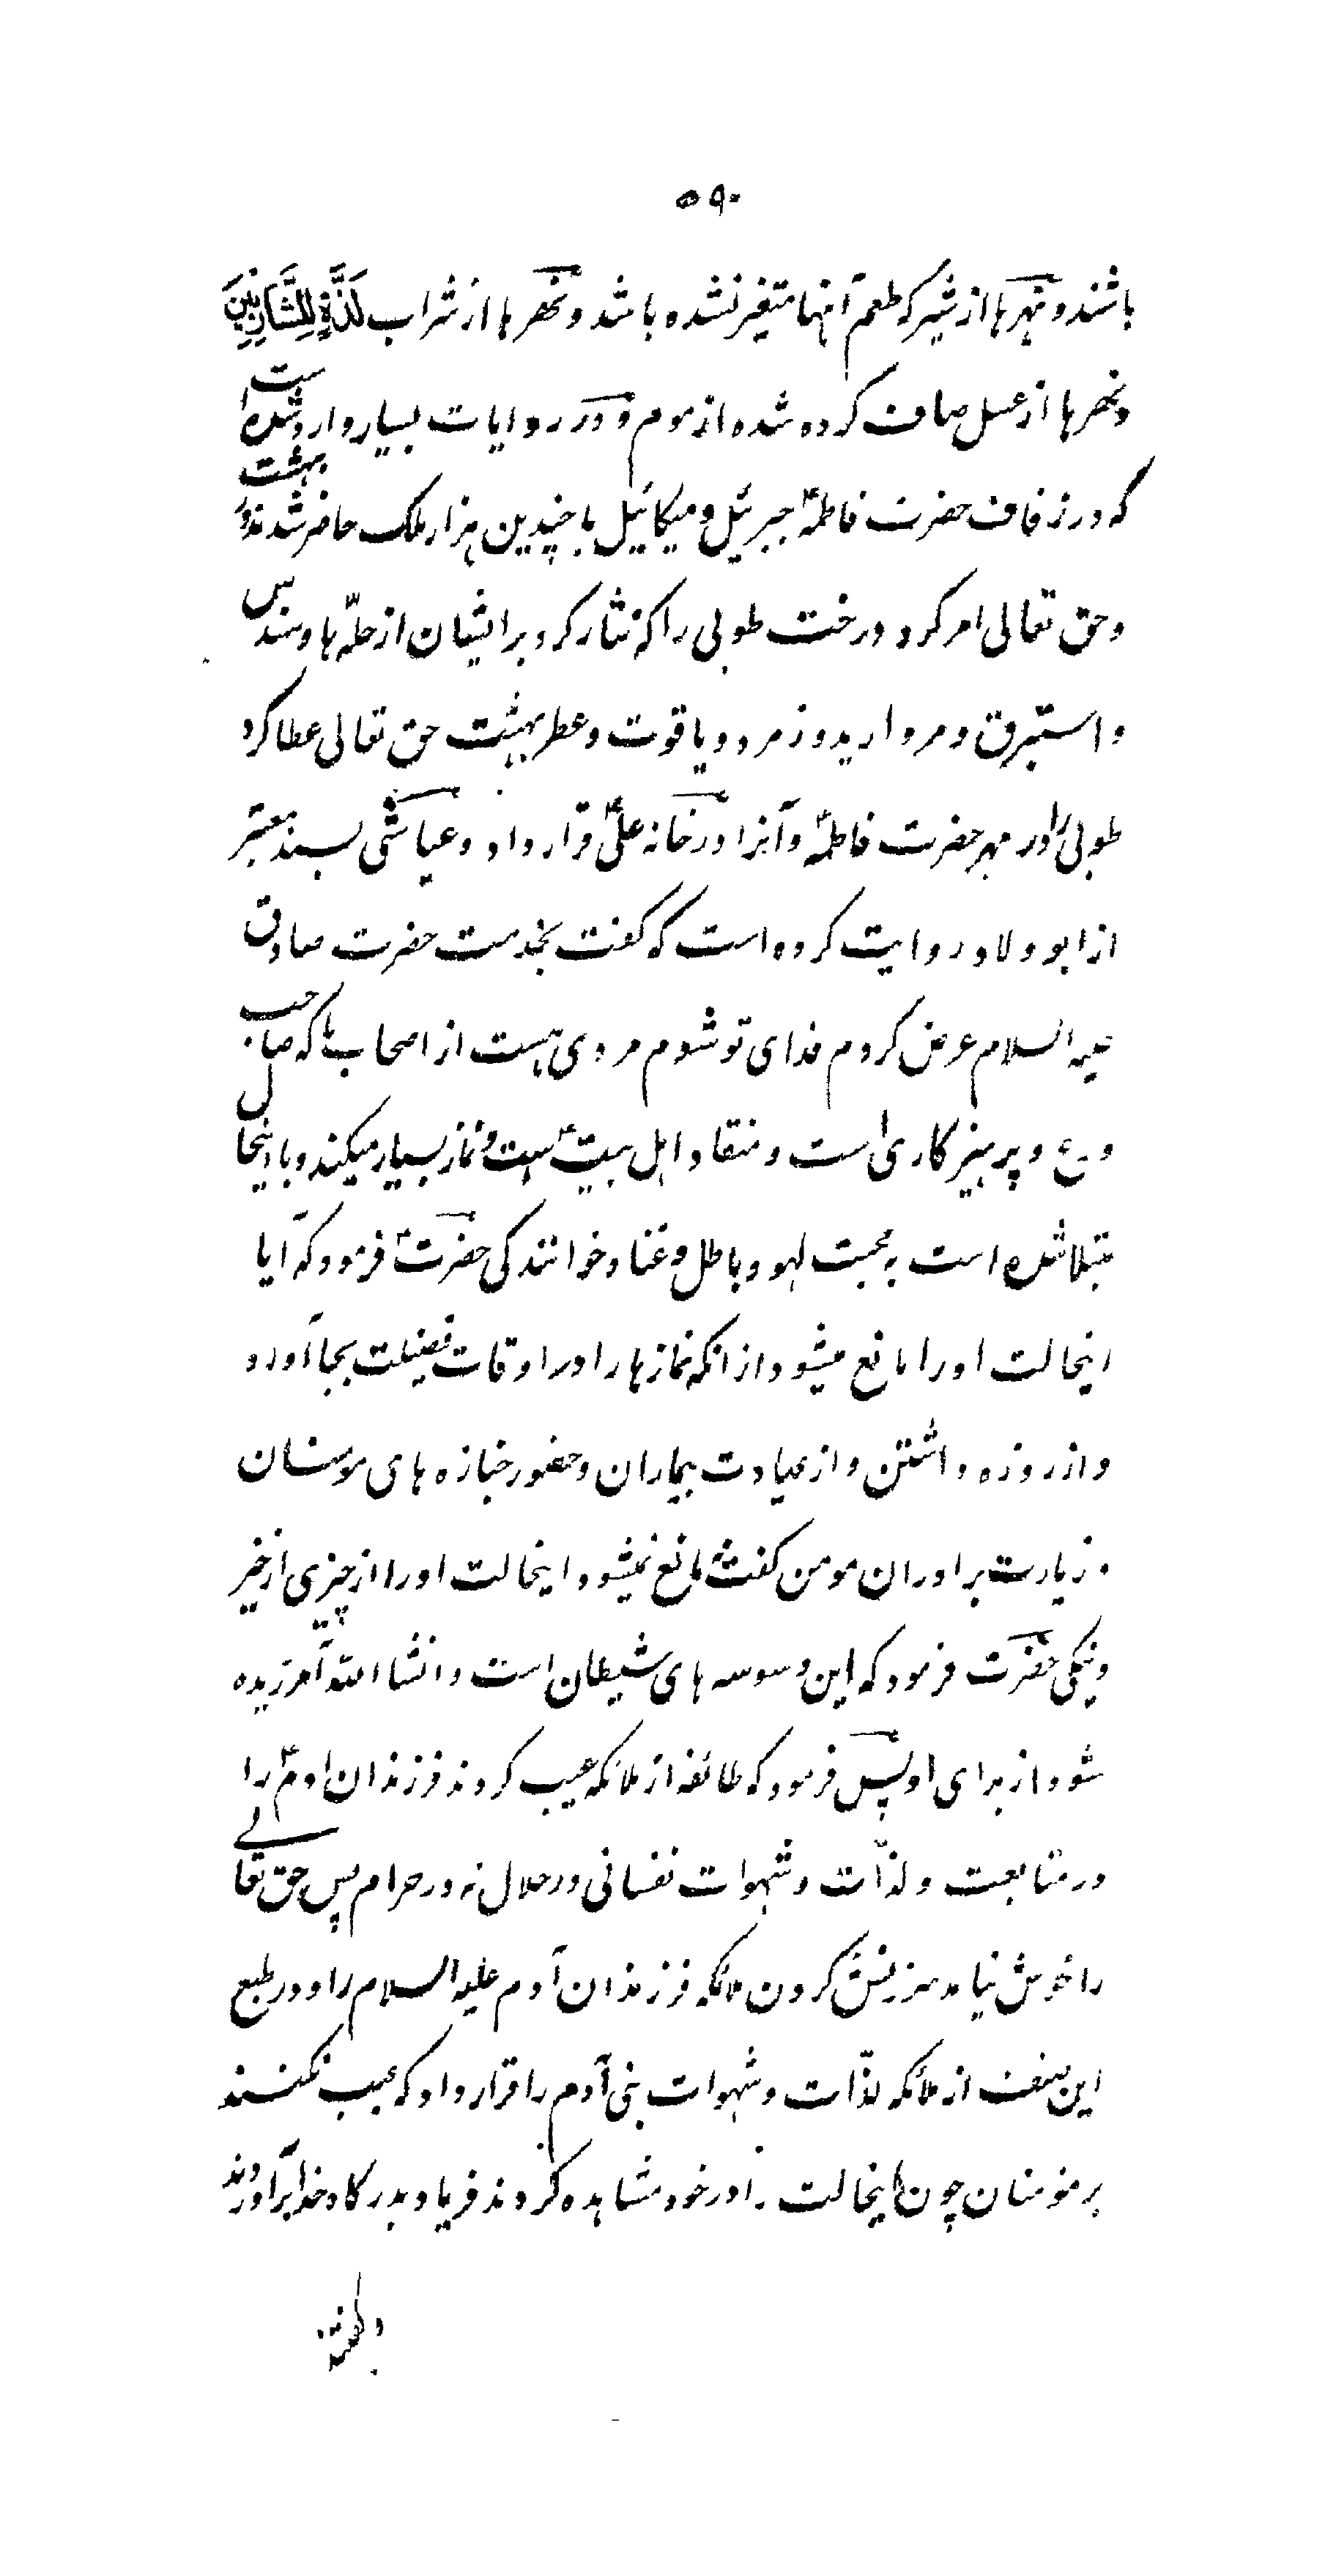 ۵۹۰
باشند و نهرها از شیر که طعم آنها متغیر نشده باشد و نهرها از شراب لَذَّةٍ لِلشَّارِبِینَ
و نهرها از عسل صاف کرده شده از موم و در روایات بسیار وارد شده است
که در زفاف حضرت فاطمهؑ جبرئیل و میکائیل با چندین هزار ملک حاضر شدند و بهشت
و حق تعالی امر کرد درخت طوبی را که نثار کرد بر ایشان از حلّه ها و سندس
و استبرق و مروارید و زمرد و یاقوت و عطر بهشت حق تعالی عطا کرد
طوبی را در مهر حضرت فاطمهؑ و آنرا در خانه علیؑ قرار داد و عیاشی بسند معتبر
از ابو ولاد روایت کرده است که گفت بخدمت حضرت صادق
علیه السلام عرض کردم فدای تو شوم مردی هست از اصحاب ما که صاحب
ورع و پرهیزکاری است و منقاد اهل بیتؑ است و نماز بسیار میکند و با اینحال
مبتلا شده است به محبت لهو و باطل و غنا و خوانندکی حضرتؑ فرمود که آیا
اینحالت او را مانع میشود از انکه نمازها را در اوقات فضیلت بجا آورد و
و از روزه داشتن و از عیادت بیماران و حضور جنازه های مومنان
و زیارت برادران مومن کفت نه مانع نمیشود اینحالت او را از چیزی از خیر
و نیکی حضرت فرمود که این وسوسه های شیطان است و انشاالله آمرزیده
شود از برای او پس فرمود که طائفه از ملائکه عیب کردند فرزندان ادمؑ را
در متابعت و لذّات و شهوات نفسانی در حلال نه در حرام پس حق تعالی
را خوش نیامد سرزنش کردن ملائکه فرزندان آدم علیه السلام را و در طبع
این صنف از ملائکه لذّات و شهوات بنی آدم را قرار داد که عیب نکنند
بر مؤمنان چون اینحالت را در خود مشاهده کردند فریاد بدرکاه خدا برآوردند